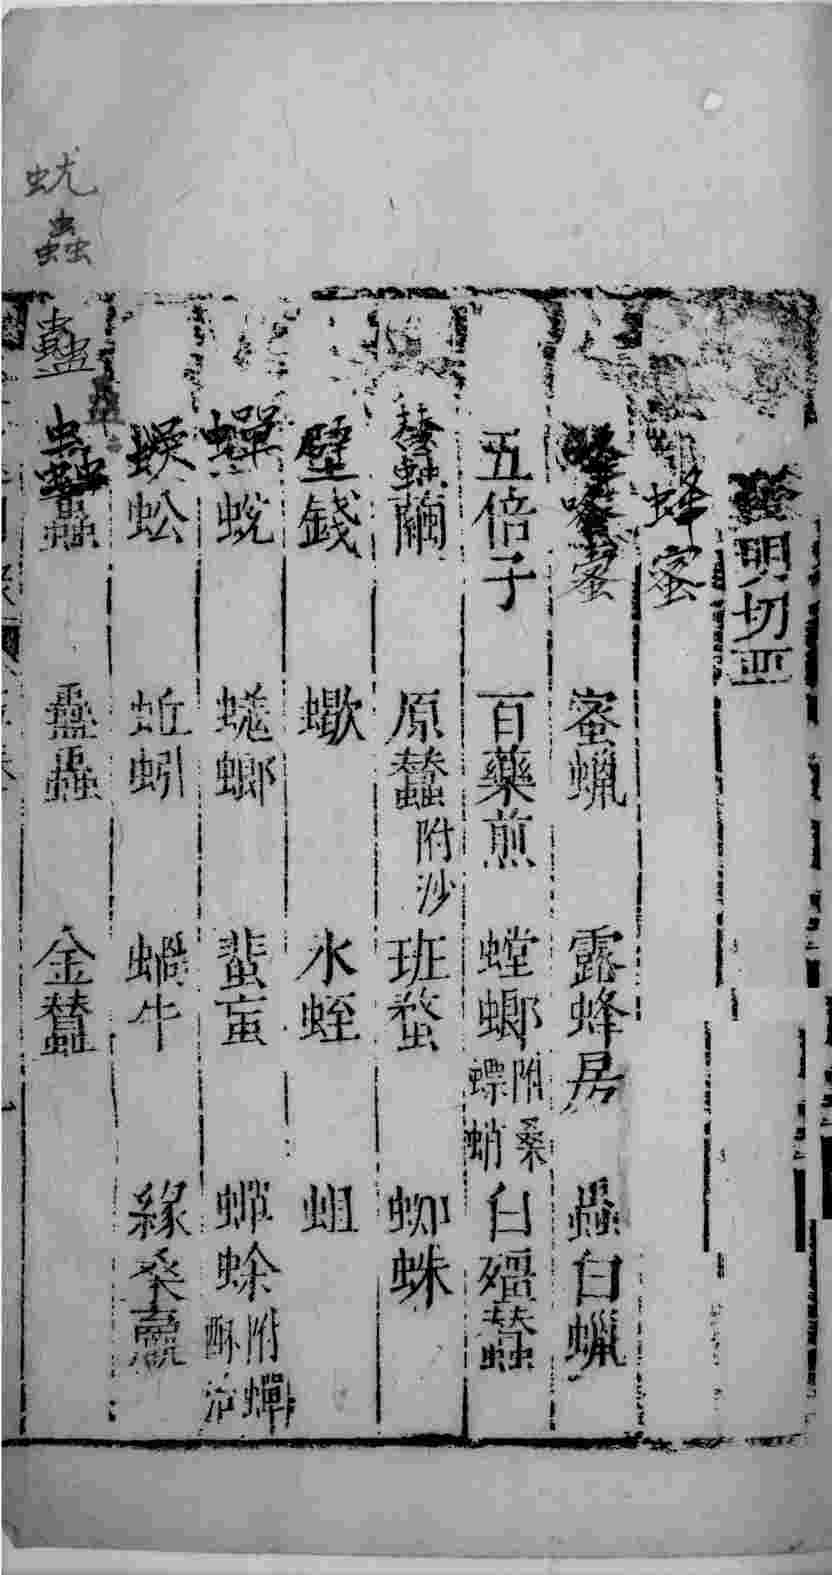 明切
蜂蜜
蜜 蜜蠟 露蜂房 蟲白蠟
五倍子 百藥煎 螳螂附桑螵蛸 白殭蠶
繭 原蠶附沙 班蝥 蜘蛛
壁錢 蠍 水蛭 蛆
蟬蛻 蜣螂 蜚䖟 蟾蜍附蟾酥
蜈蚣 蚯蚓 蝸牛 緣桑蠃
蠱蟲 金蠶
蚘
蟲
蠱